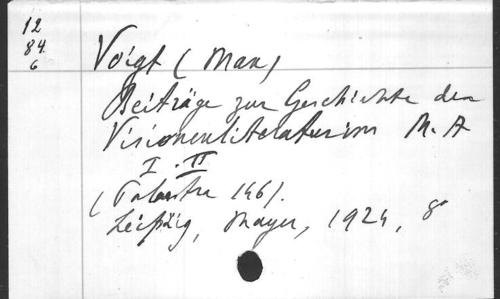 12
84
6
Voigt (Max)
Beiträge zur Geschichte der
Visionenliteratur im M. A
I. II
(Palaestra 146).
Leipzig, Mayer, 1924, 8